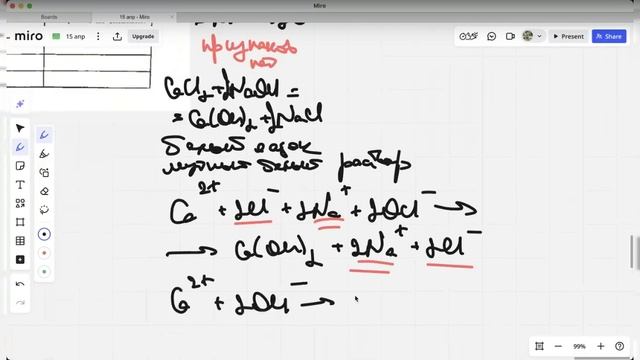 Miro
Boards
15 апр - Miro
miro
15 апр
Upgrade
Present
Share
CaCl₂ + 2NaOH =
= Ca(OH)₂ + 2NaCl
белый
белый раствор
Ca²⁺ + 2Cl⁻ + 2Na⁺ + 2OH⁻ →
→ Ca(OH)₂ + 2Na⁺ + 2Cl⁻
Ca²⁺ + 2OH⁻ →
99%